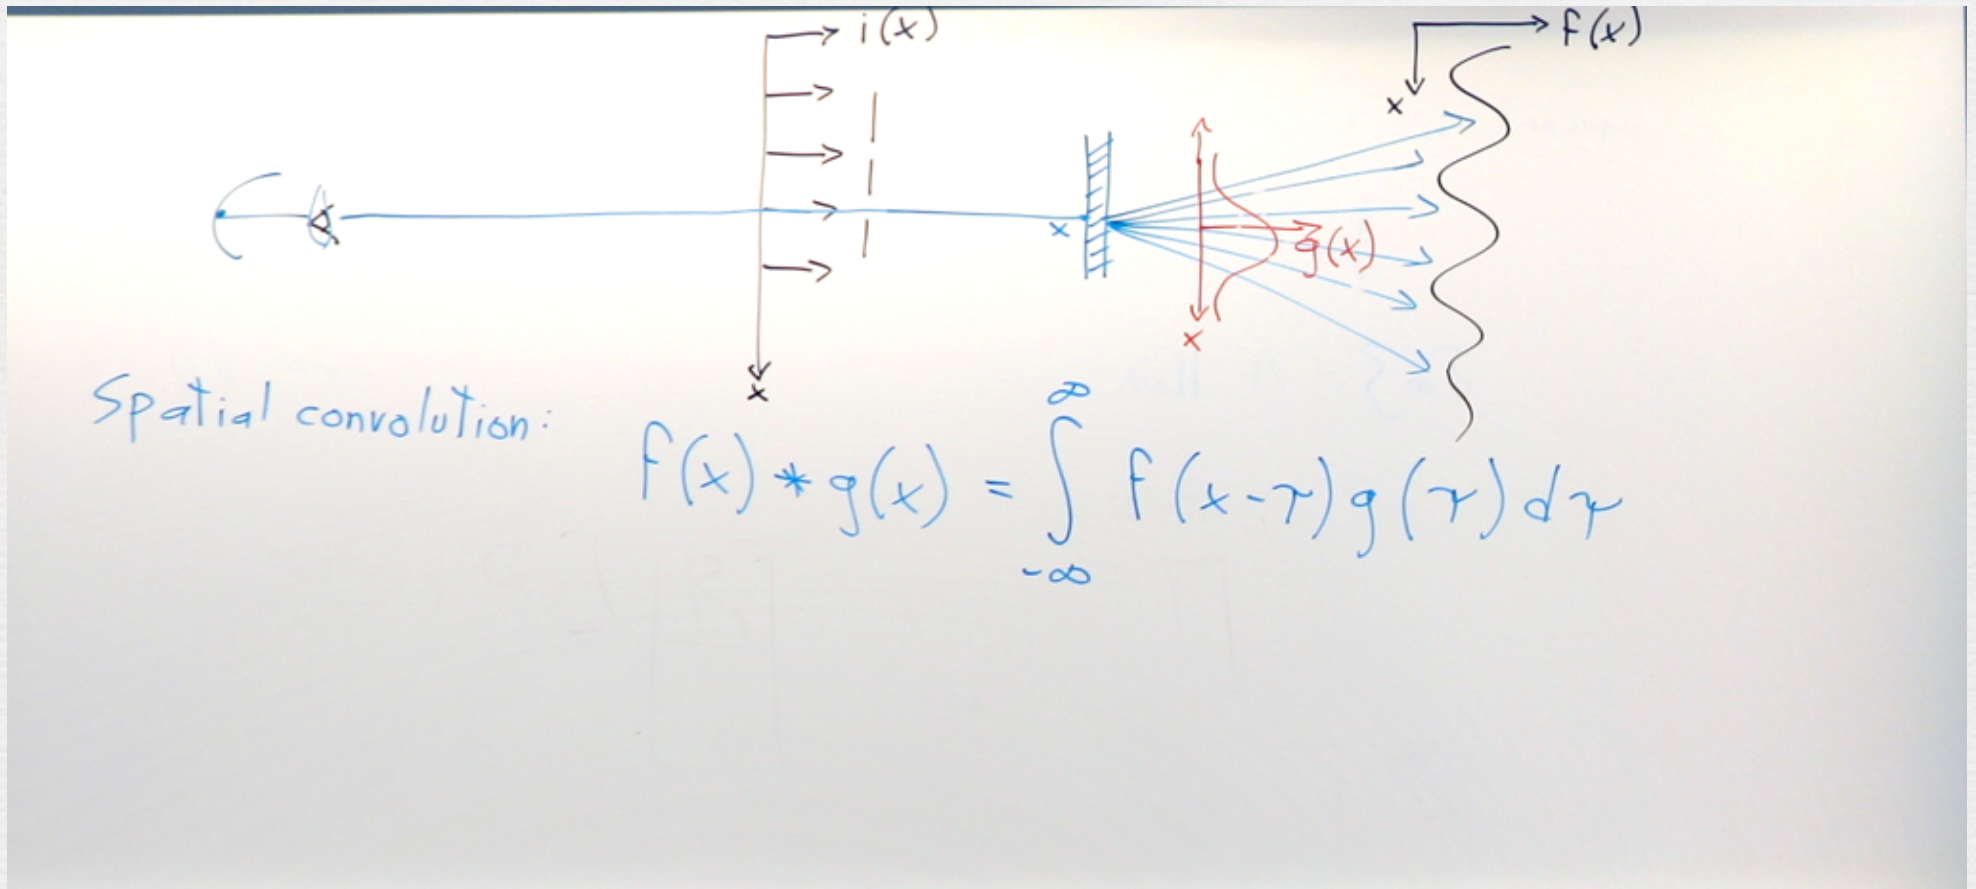 i(x)
f(x)
x
x
g(x)
x
x
Spatial convolution:
f(x) * g(x) = ∫_{-∞}^{∞} f(x-τ) g(τ) dτ